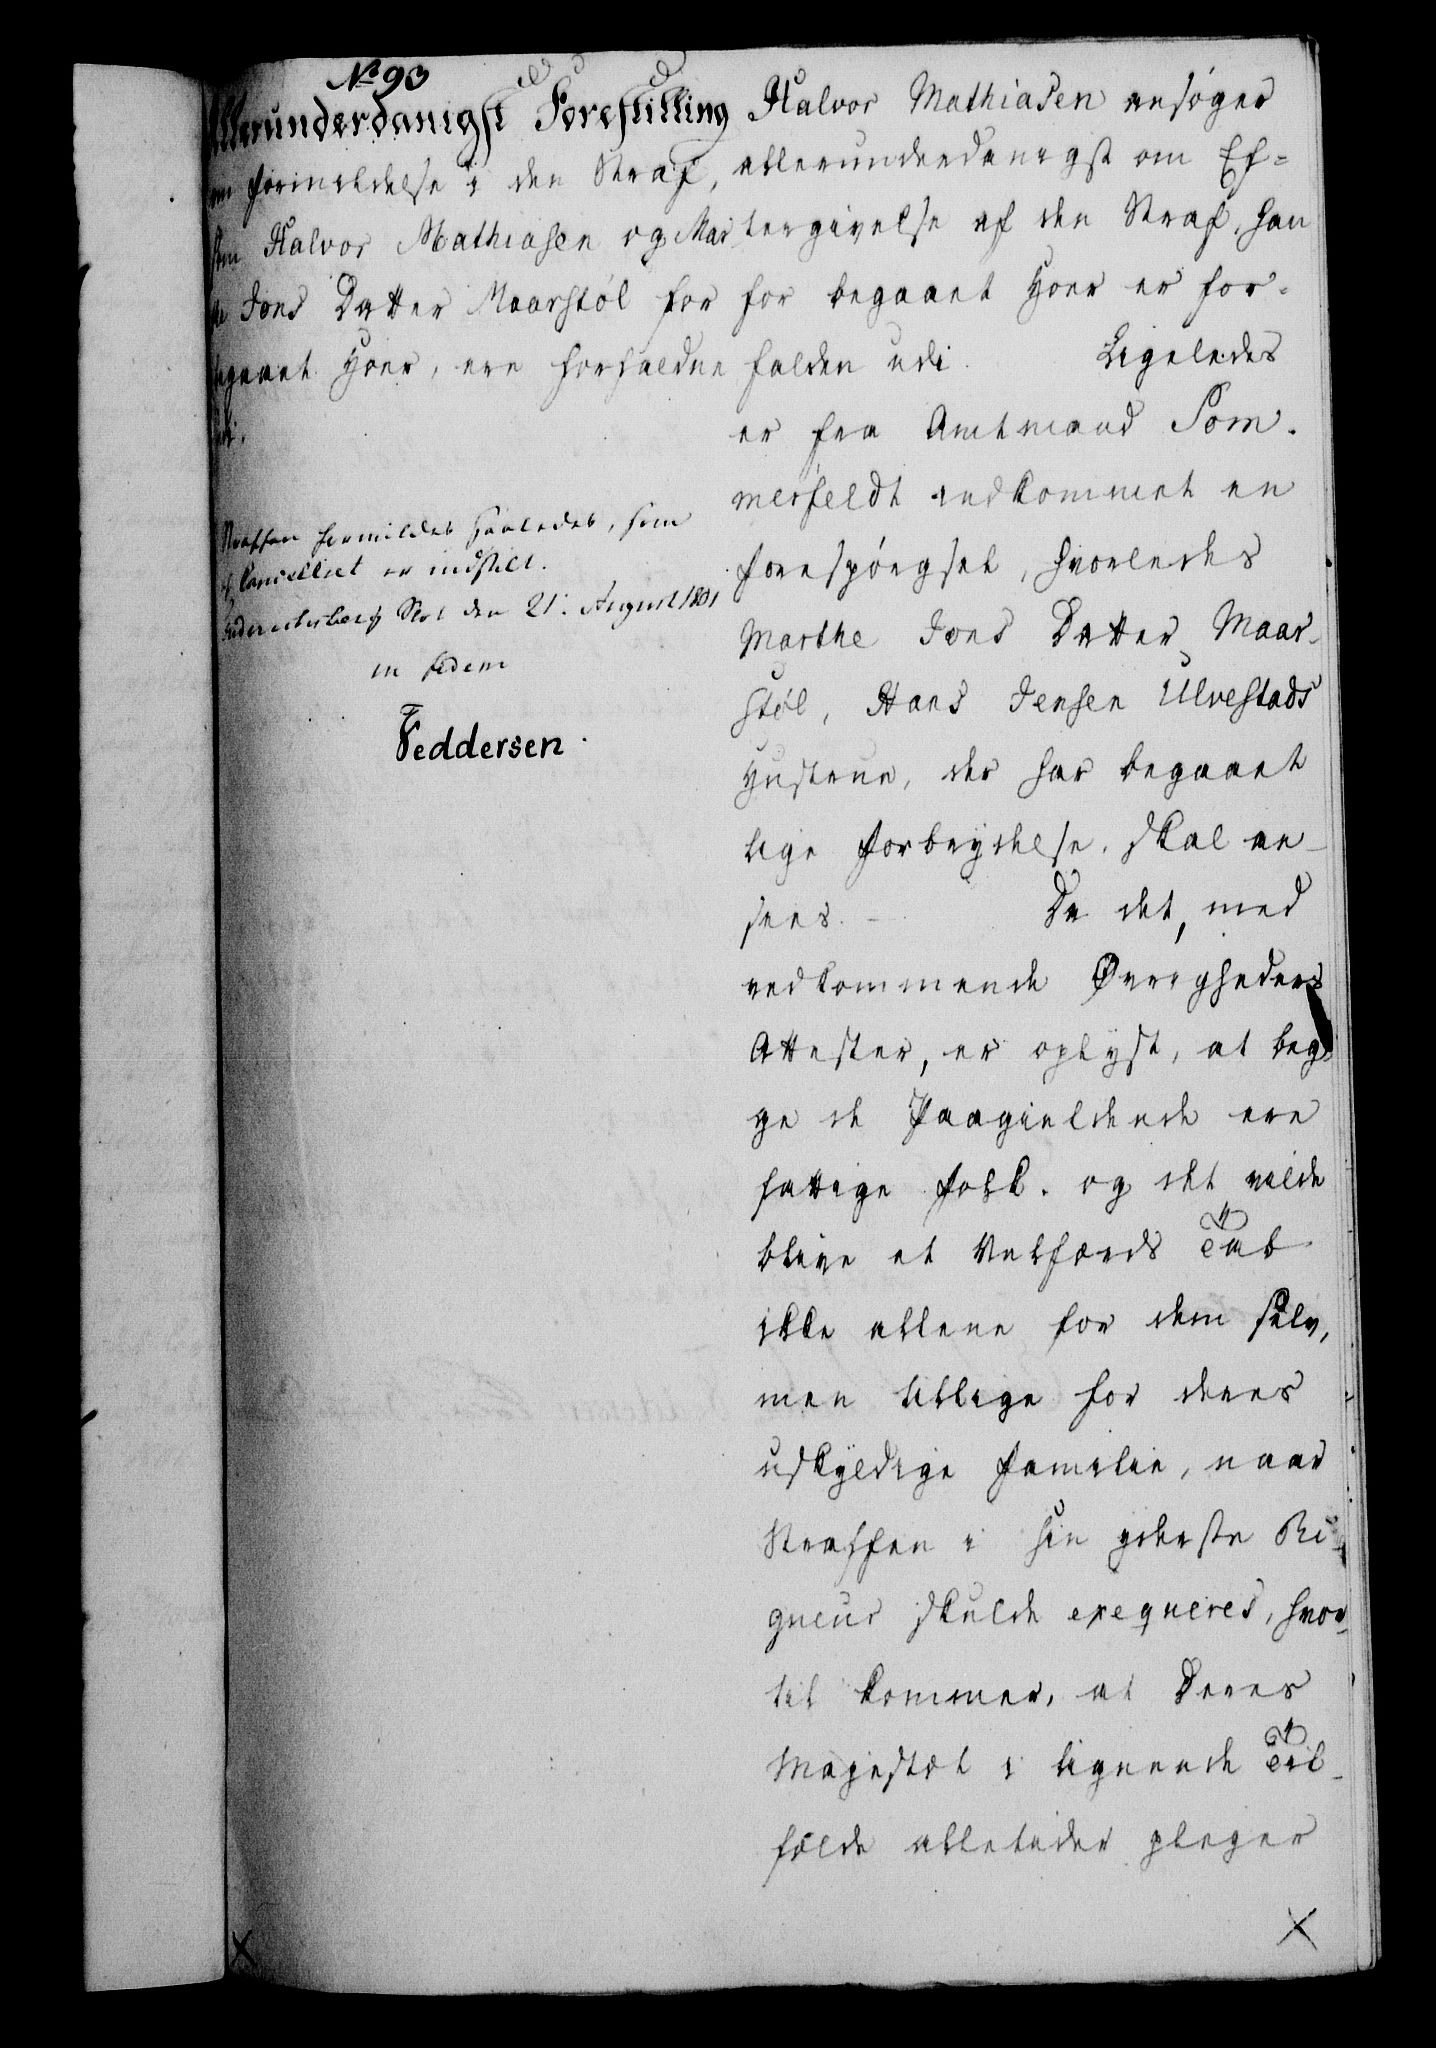 No 93
Allerunderdanigst Forestilling
om Formildelse i den Straf,
som Halvor Mathiasen og Mar
the Jons Datter Maarstøl for
begaaet Hoer, ere forfaldne
udi.
Straffen formildes saaledes, som
af Cancelliet er indstilt.
Friderichsberg Slot den 21. August 1801
in fidem
Feddersen.
Halvor Mathiasen ansøger
allerunderdanigst om Ef=
tergivelse af den Straf, han
for begaaet Hoer er for-
falden udi. Ligeledes
er fra Amtmand Som-
merfeldt indkommet en
Forespørgsel, hvorledes
Marthe Jons Datter Maar-
støl, Hans Jensen Ulvestads
Hustrue, der har begaaet
lige Forbrydelse, skal an-
sees. – Da det, med
vedkommende Øvrigheders
Attester, er oplyst, at beg-
ge de Paagieldende ere
fattige Folk, og det vilde
blive et Velfærds Tab
ikke allene for dem selv,
men tillige for deres
uskyldige Familie, naar
Straffen i sin yderste Ri-
gueur skulde exequeres, hvor-
til kommer, at Deres
Majestæt i lignende Til-
fælde alletider pleger